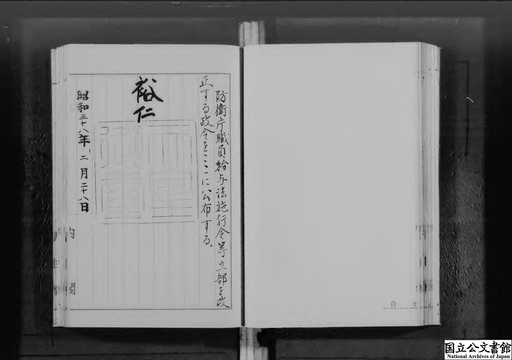 防衛庁職員給与法施行令等の一部を改
正する政令をここに公布する。
裕仁
昭和三十八年二月二十八日
内閣
国立公文書館
National Archives of Japan